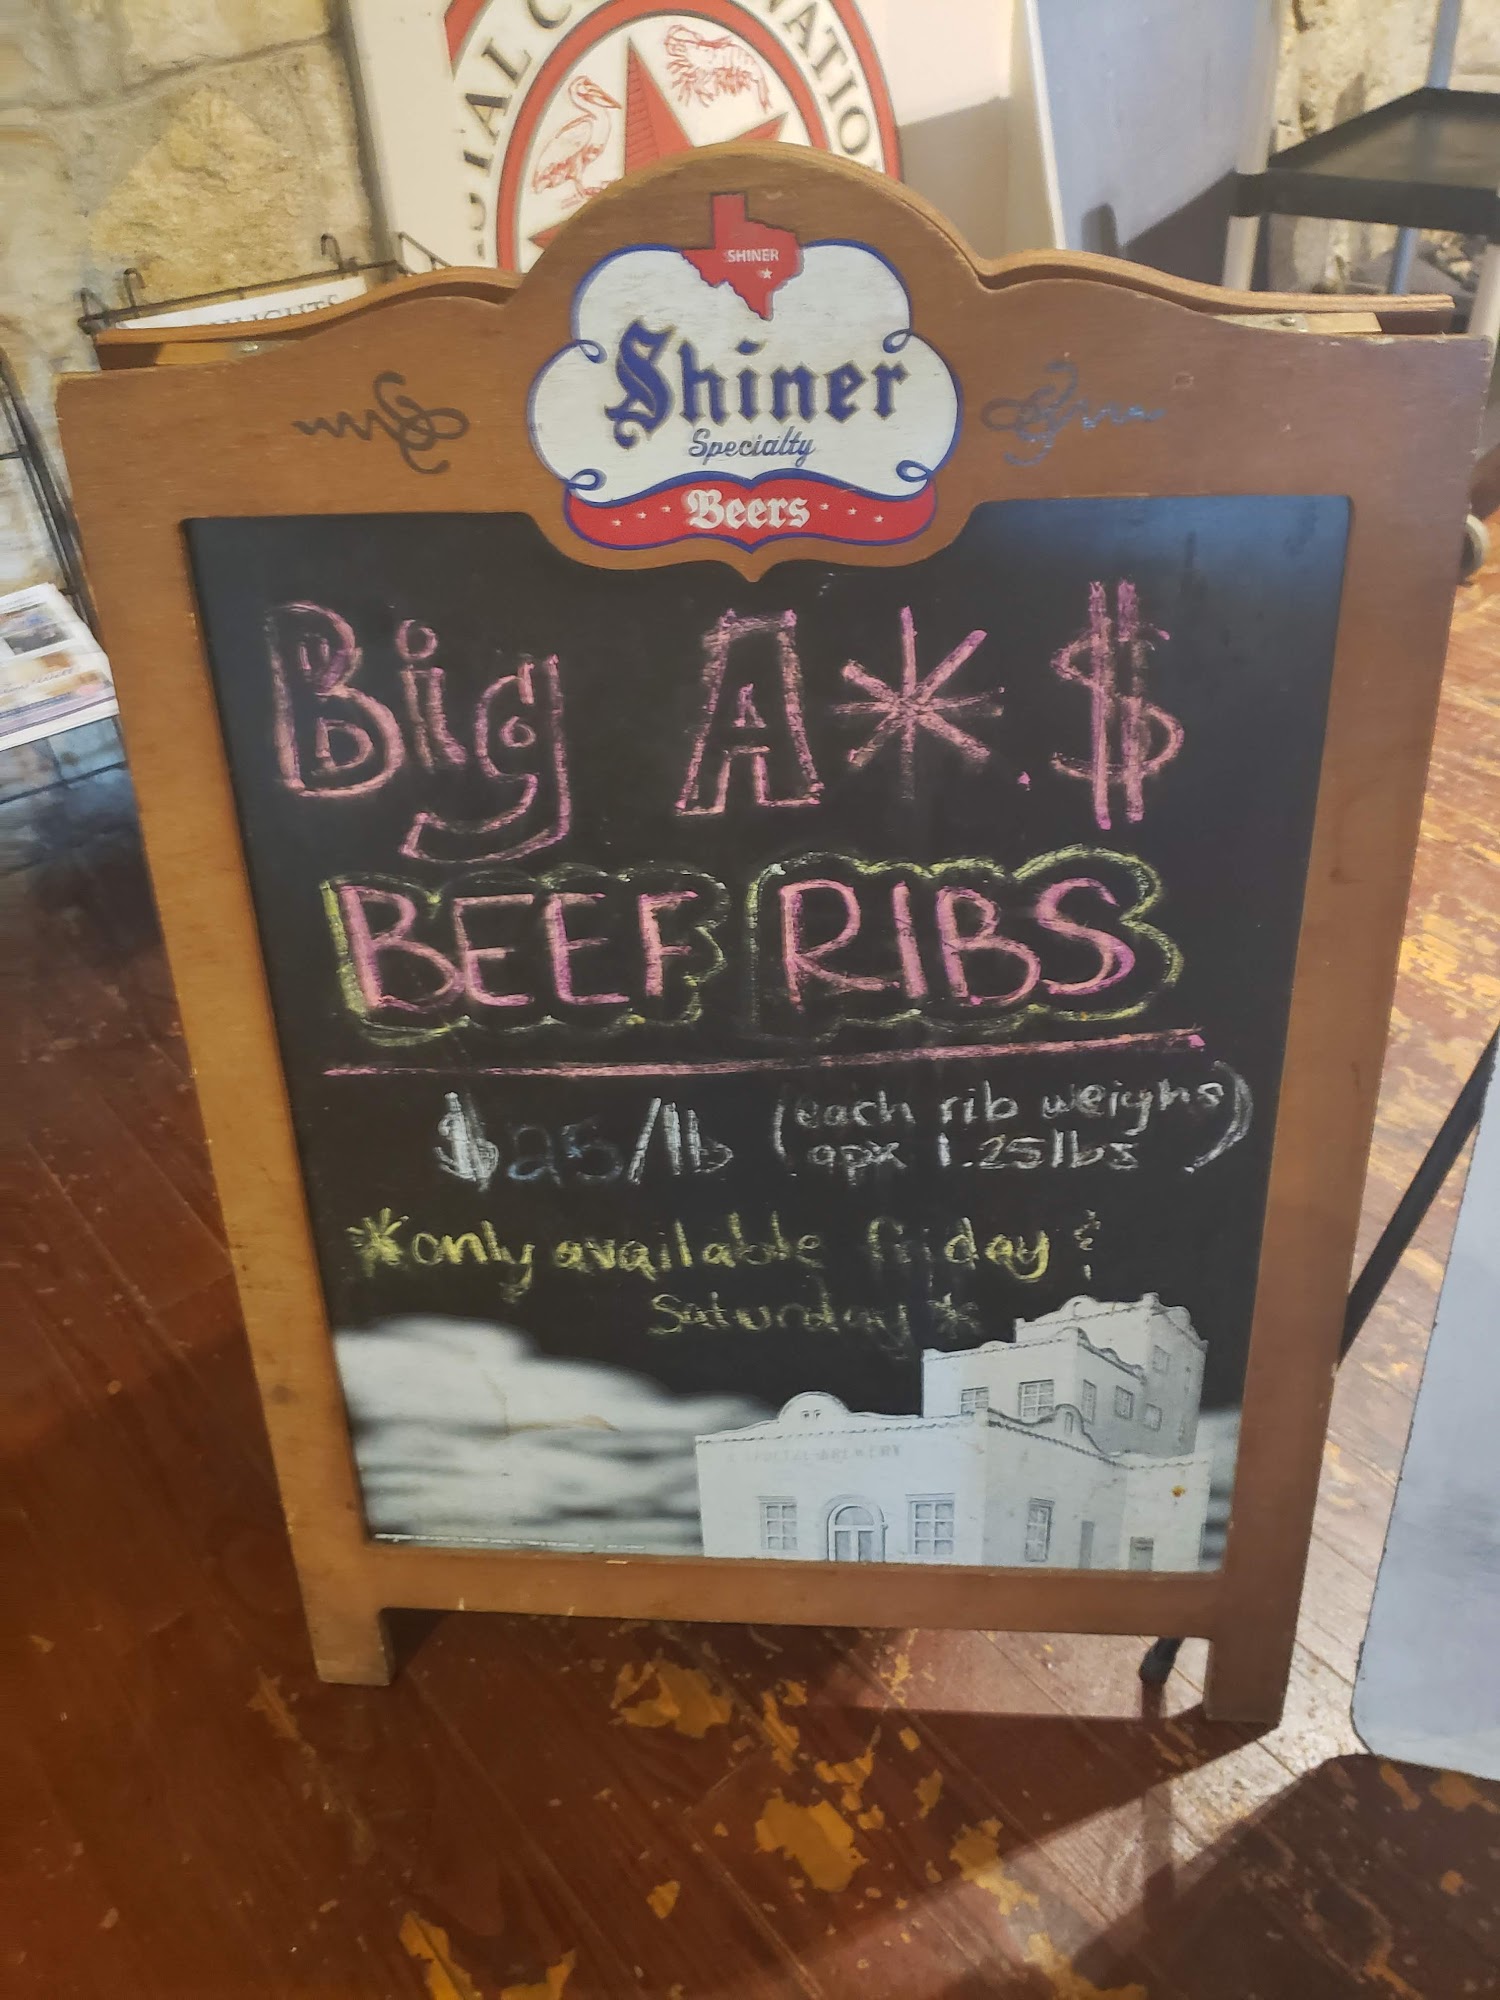 SHINER
Shiner
Specialty
Beers
Big A*$
BEEF RIBS
$25/lb (each rib weighs
apx 1.25lbs)
*only available friday &
Saturday*